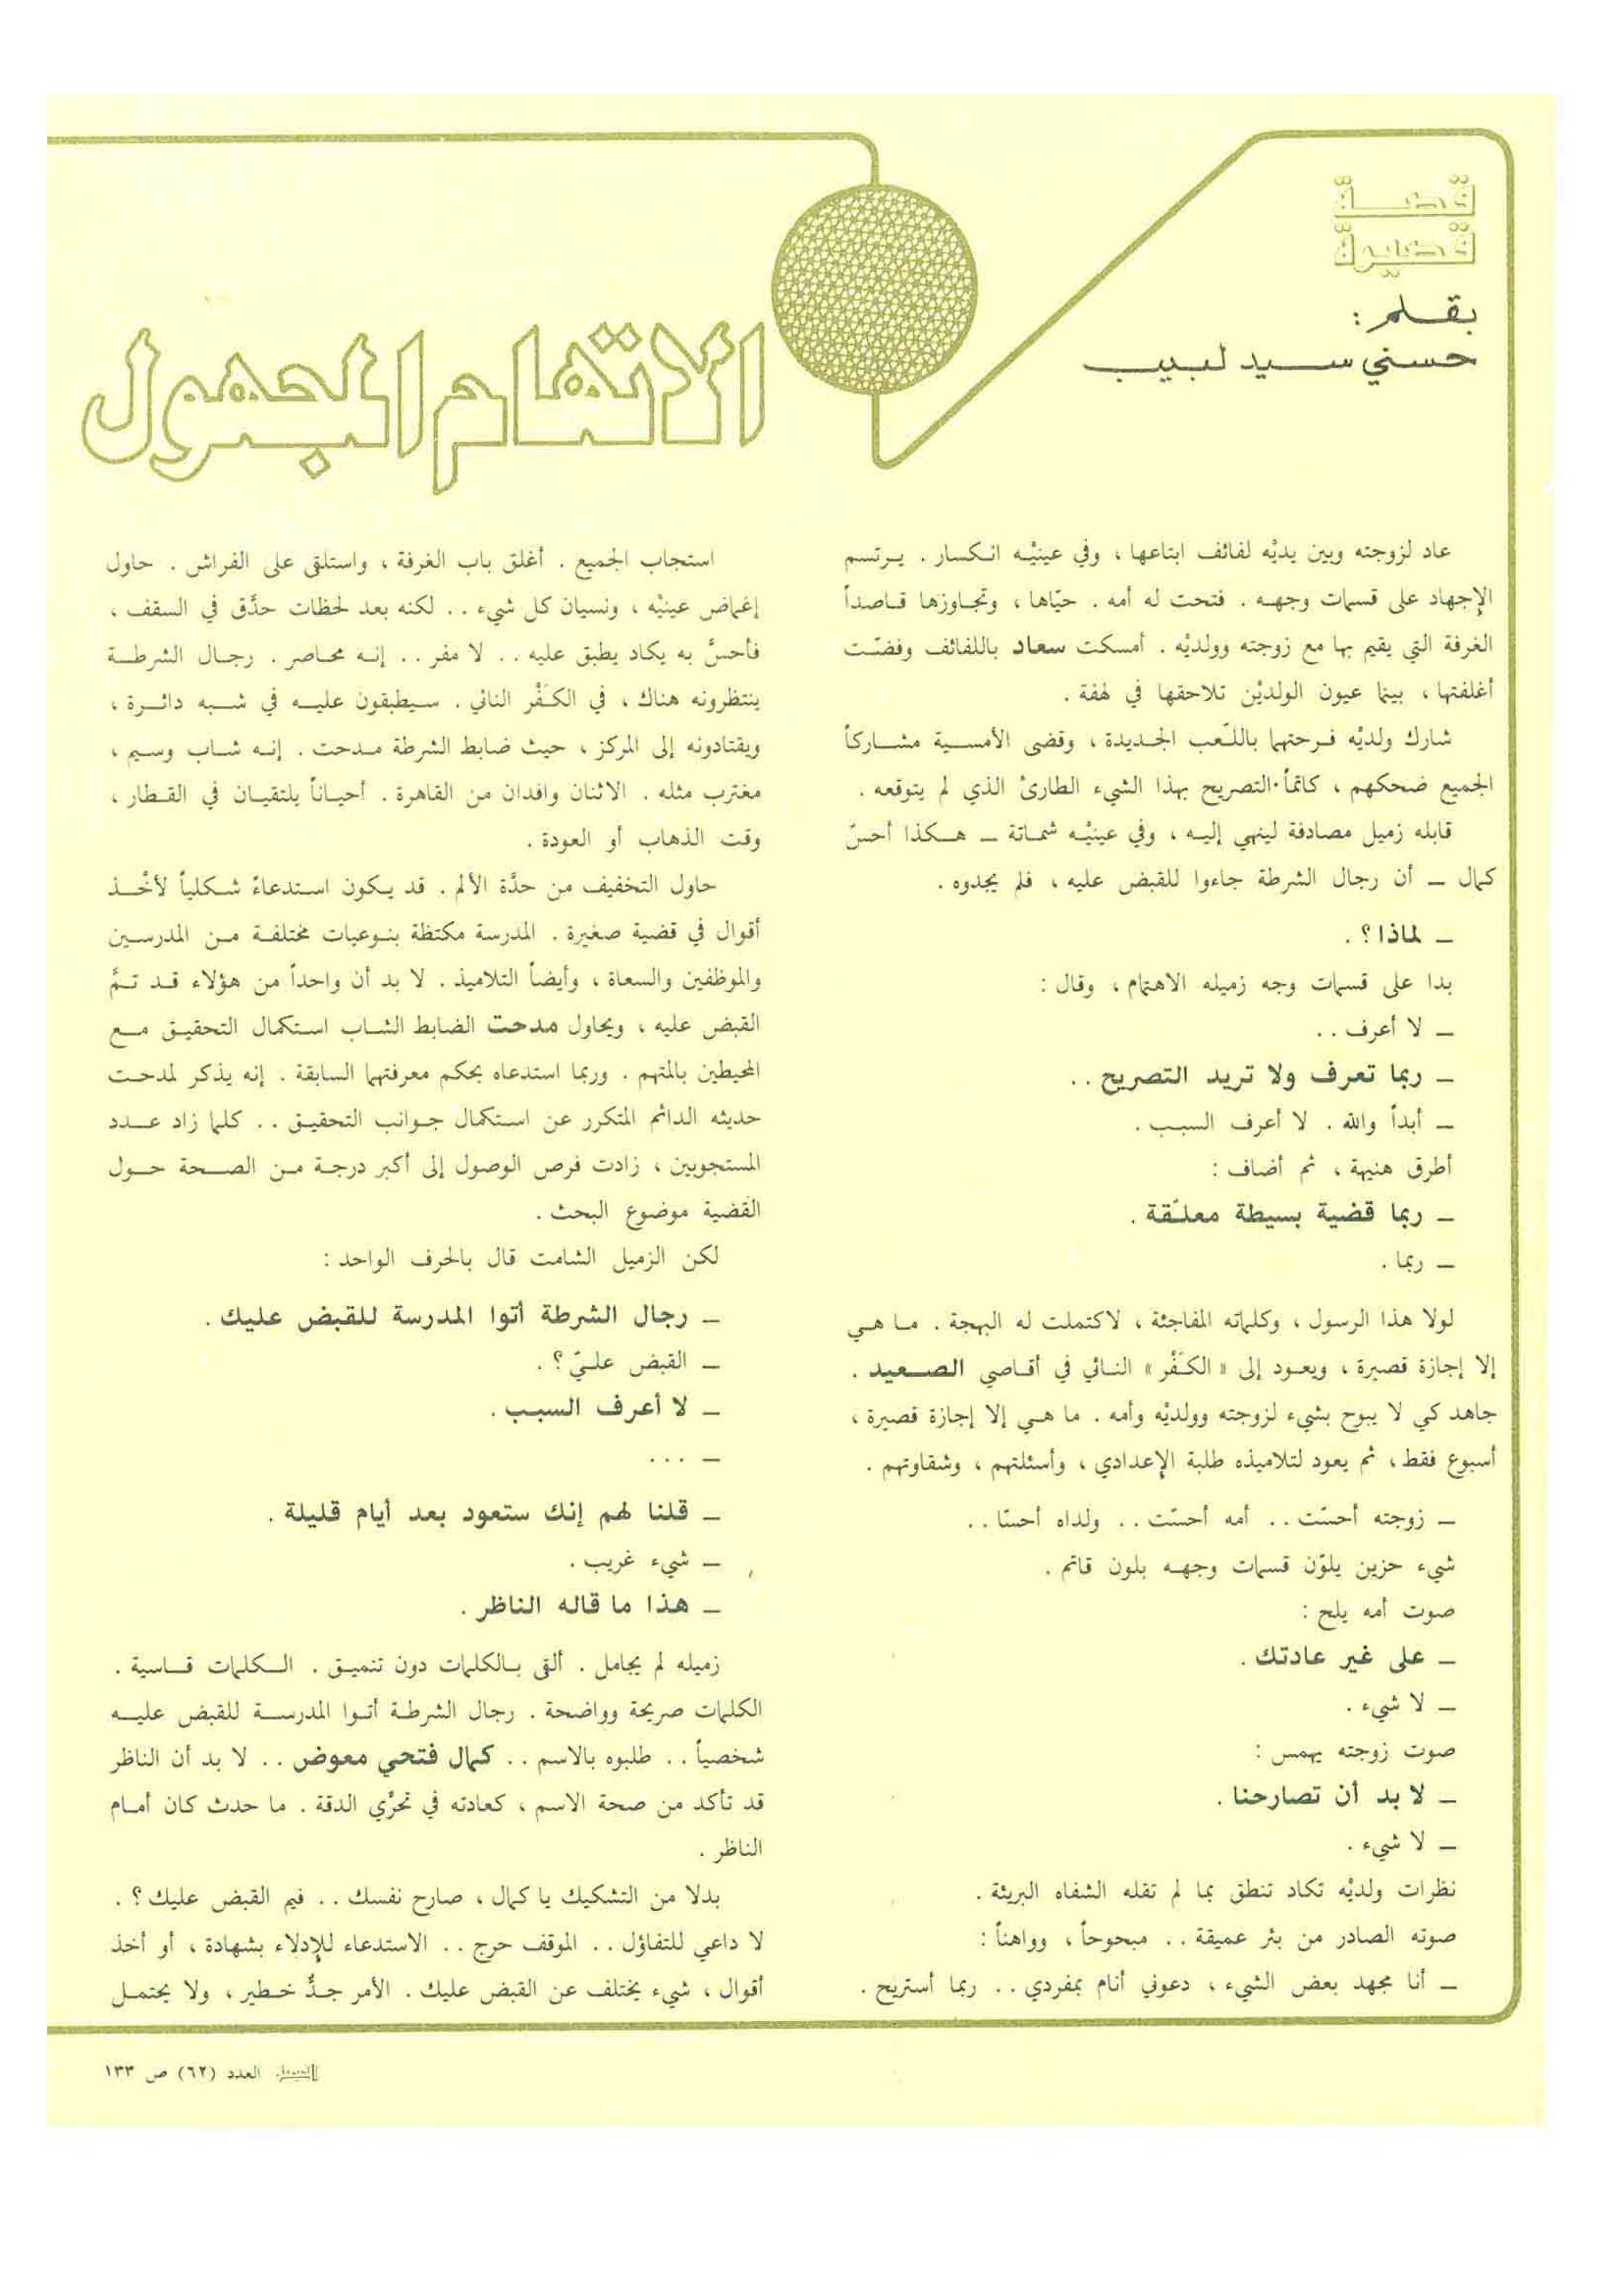 قصة
قصيرة
بقلم :
حسني سيد لبيب
الاتهام المجهول
عاد لزوجته وبين يديْه لفائف ابتاعها ، وفي عينيْه انكسار . يرتسم
الإجهاد على قسمات وجهه . فتحت له أمه . حيّاها ، وتجاوزها قاصداً
الغرفة التي يقيم بها مع زوجته وولديْه . أمسكت سعاد باللفائف وفضّت
أغلفتها ، بينما عيون الولديْن تلاحقها في لهفة .
شارك ولديْه فرحتهما باللّعب الجديدة ، وقضى الأمسية مشاركاً
الجميع ضحكهم ، كاتماً التصريح بهذا الشيء الطارئ الذي لم يتوقعه .
قابله زميل مصادفة لينهي إليه ، وفي عينيْه شماتة – هكذا أحسّ
كمال – أن رجال الشرطة جاءوا للقبض عليه ، فلم يجدوه .
– لماذا ؟ .
بدا على قسمات وجه زميله الاهتمام ، وقال :
– لا أعرف . .
– ربما تعرف ولا تريد التصريح . .
– أبداً والله . لا أعرف السبب .
أطرق هنيهة ، ثم أضاف :
– ربما قضية بسيطة معلّقة .
– ربما .
لولا هذا الرسول ، وكلماته المفاجئة ، لاكتملت له البهجة . ما هي
إلا إجازة قصيرة ، ويعود إلى « الكَفْر » النائي في أقاصي الصعيد .
جاهد كي لا يبوح بشيء لزوجته وولديْه وأمه . ما هي إلا إجازة قصيرة ،
أسبوع فقط ، ثم يعود لتلاميذه طلبة الإعدادي ، وأسئلتهم ، وشقاوتهم .
– زوجته أحسّت . . أمه أحسّت . . ولداه أحسّا . .
شيء حزين يلوّن قسمات وجهه بلون قاتم .
صوت أمه يلح :
– على غير عادتك .
– لا شيء .
صوت زوجته يهمس :
– لا بد أن تصارحنا .
– لا شيء .
نظرات ولديْه تكاد تنطق بما لم تقله الشفاه البريئة .
صوته الصادر من بئر عميقة . . مبحوحاً ، وواهناً :
– أنا مجهد بعض الشيء ، دعوني أنام بمفردي . . ربما أستريح .
استجاب الجميع . أغلق باب الغرفة ، واستلقى على الفراش . حاول
إغماض عينيْه ، ونسيان كل شيء . . لكنه بعد لحظات حدَّق في السقف ،
فأحسَّ به يكاد يطبق عليه . . لا مفر . . إنه محاصر . رجال الشرطة
ينتظرونه هناك ، في الكَفْر النائي . سيطبقون عليه في شبه دائرة ،
ويقتادونه إلى المركز ، حيث ضابط الشرطة مدحت . إنه شاب وسيم ،
مغترب مثله . الاثنان وافدان من القاهرة . أحياناً يلتقيان في القطار ،
وقت الذهاب أو العودة .
حاول التخفيف من حدَّة الألم . قد يكون استدعاءً شكلياً لأخْذ
أقوال في قضية صغيرة . المدرسة مكتظة بنوعيات مختلفة من المدرسين
والموظفين والسعاة ، وأيضاً التلاميذ . لا بد أن واحداً من هؤلاء قد تمَّ
القبض عليه ، ويحاول مدحت الضابط الشاب استكمال التحقيق مع
المحيطين بالمتهم . وربما استدعاه بحكم معرفتهما السابقة . إنه يذكر لمدحت
حديثه الدائم المتكرر عن استكمال جوانب التحقيق . . كلما زاد عدد
المستجوبين ، زادت فرص الوصول إلى أكبر درجة من الصحة حول
القضية موضوع البحث .
لكن الزميل الشامت قال بالحرف الواحد :
– رجال الشرطة أتوا المدرسة للقبض عليك .
– القبض عليّ ؟ .
– لا أعرف السبب .
– . . .
– قلنا لهم إنك ستعود بعد أيام قليلة .
– شيء غريب .
– هذا ما قاله الناظر .
زميله لم يجامل . ألقى بالكلمات دون تنميق . الكلمات قاسية .
الكلمات صريحة وواضحة . رجال الشرطة أتوا المدرسة للقبض عليه
شخصياً . . طلبوه بالاسم . . كمال فتحي معوض . . لا بد أن الناظر
قد تأكد من صحة الاسم ، كعادته في تحرّي الدقة . ما حدث كان أمام
الناظر .
بدلا من التشكيك يا كمال ، صارح نفسك . . فيم القبض عليك ؟ .
لا داعي للتفاؤل . . الموقف حرج . . الاستدعاء للإدلاء بشهادة ، أو أخذ
أقوال ، شيء يختلف عن القبض عليك . الأمر جدٌّ خطير ، ولا يحتمل
الفيصل العدد (٦٢) ص ١٣٣